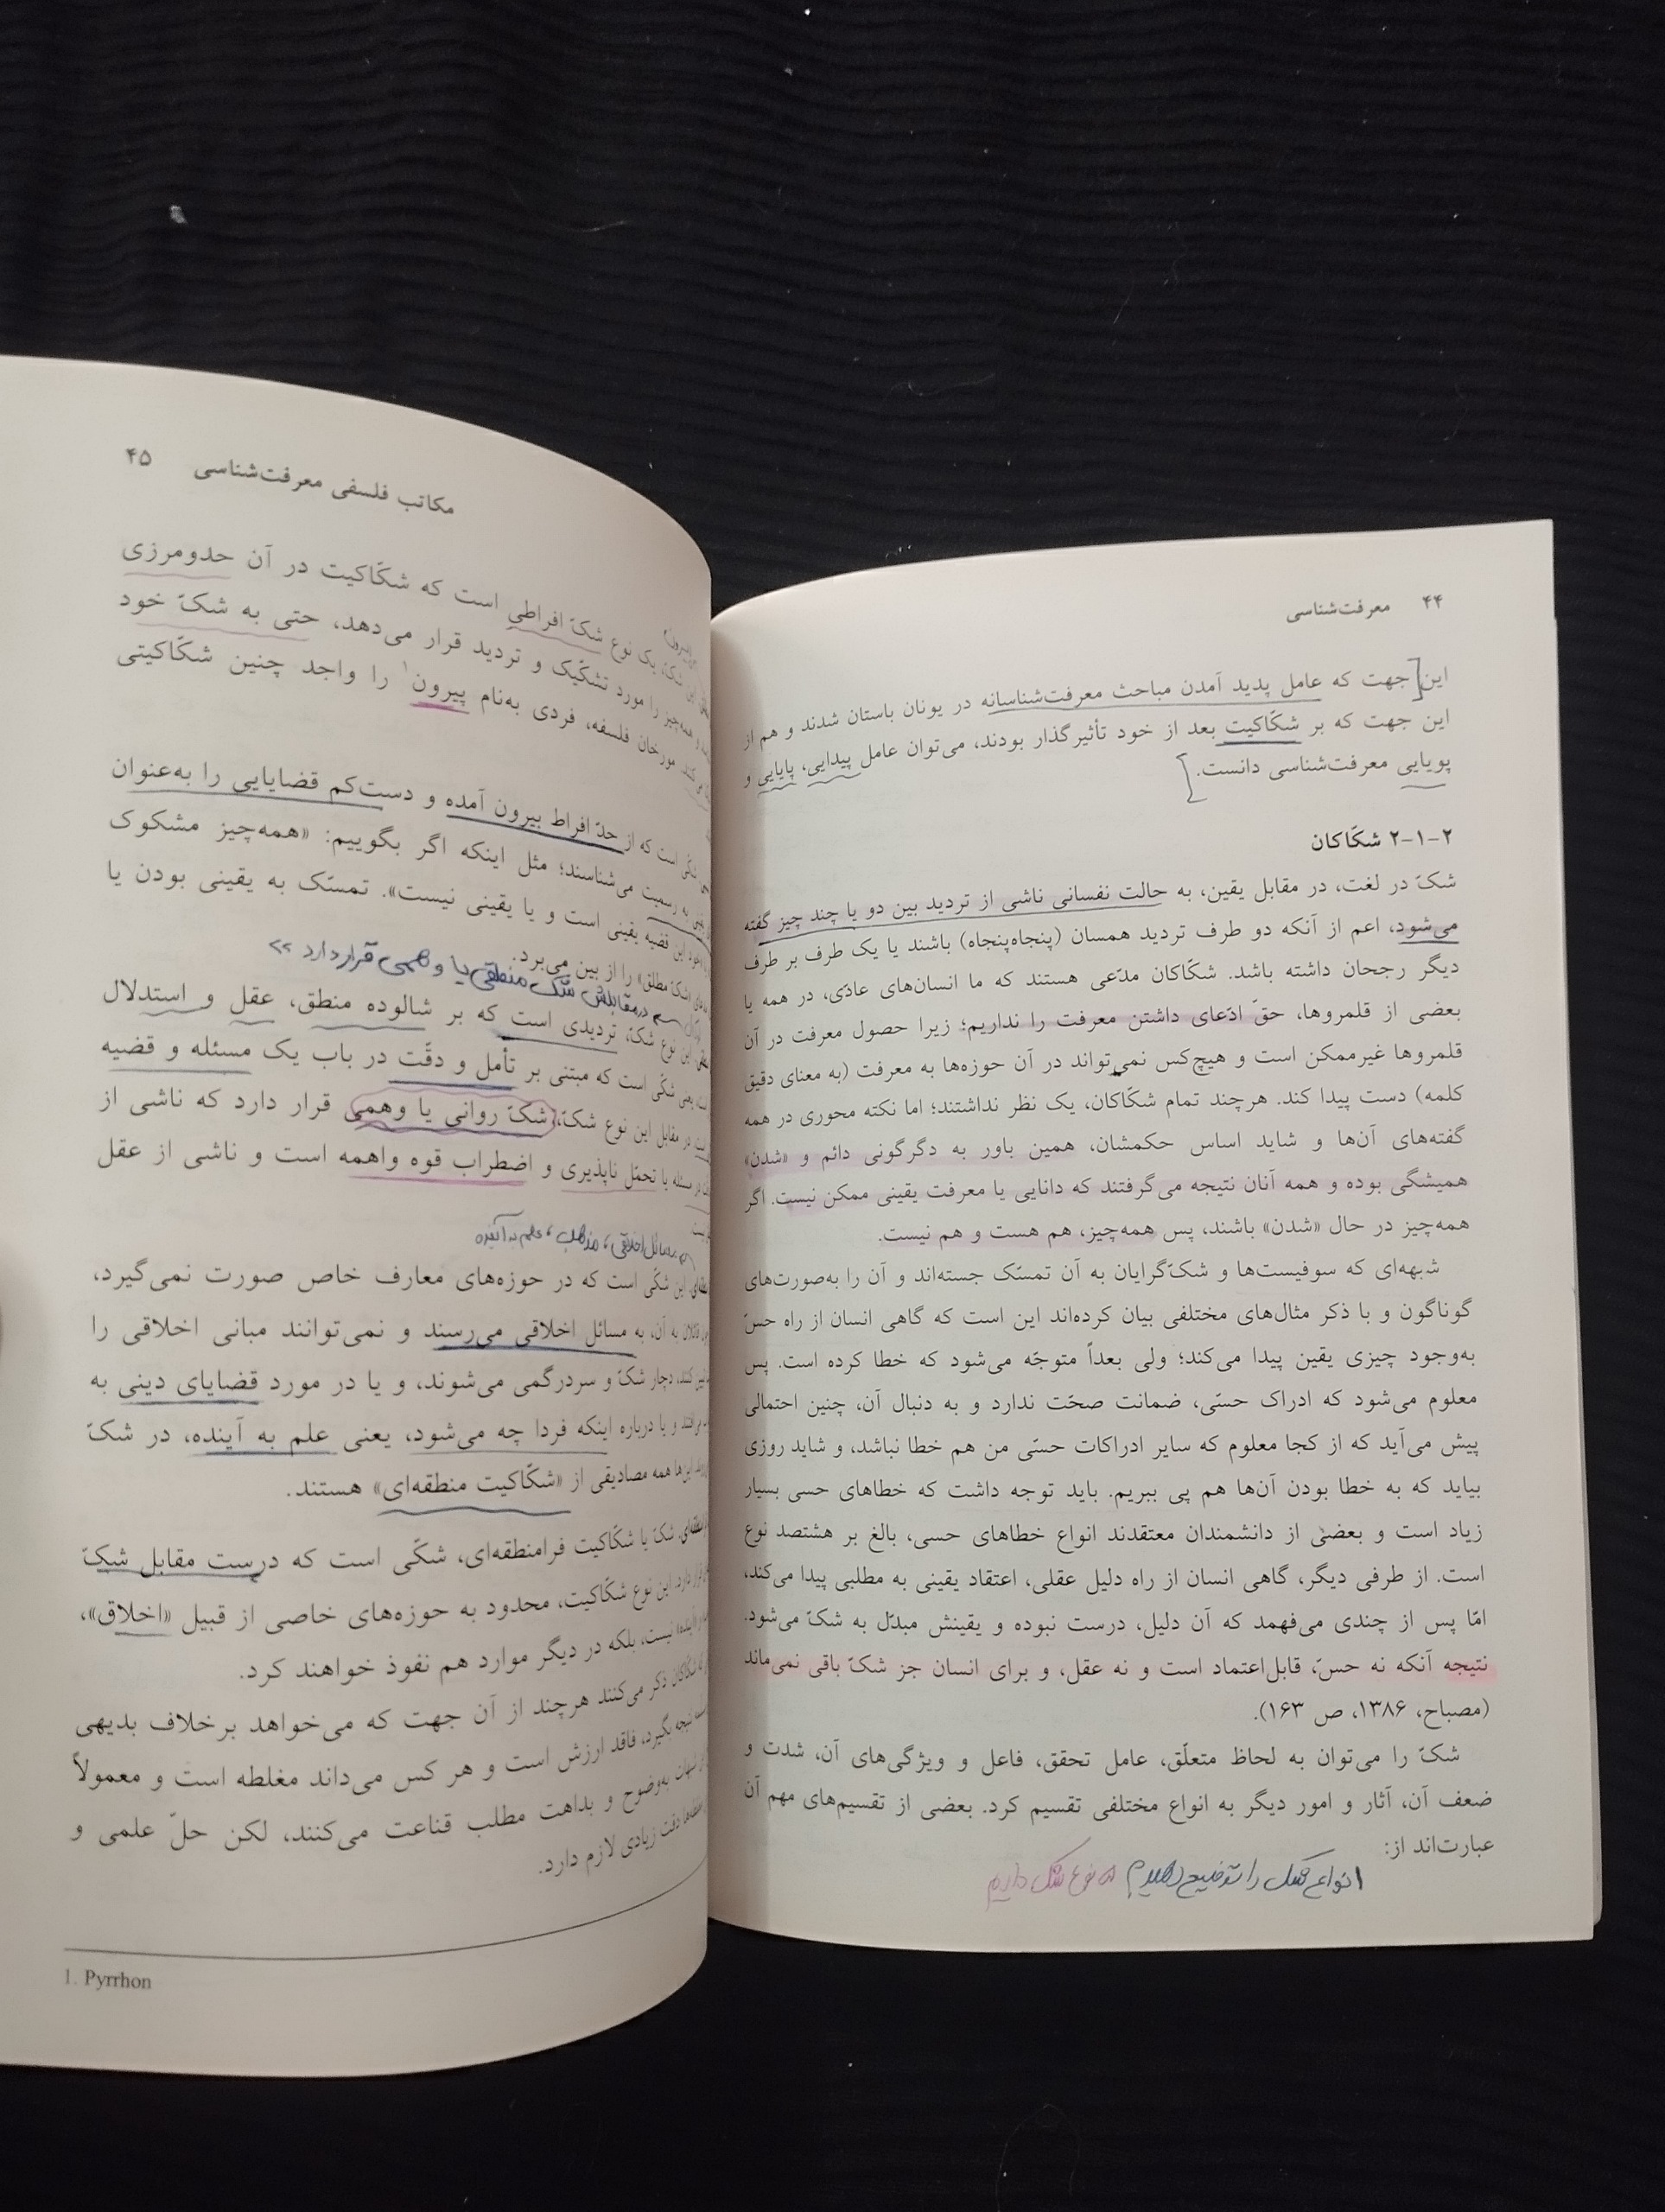 ۴۴ معرفت‌شناسی
این جهت که عامل پدید آمدن مباحث معرفت‌شناسانه در یونان باستان شدند و هم از
این جهت که بر شکّاکیت بعد از خود تأثیرگذار بودند، می‌توان عامل پیدایی، پایایی و
پویایی معرفت‌شناسی دانست.
۲-۱-۲ شکّاکان
شکّ در لغت، در مقابل یقین، به حالت نفسانی ناشی از تردید بین دو یا چند چیز گفته
می‌شود، اعم از آنکه دو طرف تردید همسان (پنجاه‌پنجاه) باشند یا یک طرف بر طرف
دیگر رجحان داشته باشد. شکّاکان مدّعی هستند که ما انسان‌های عادّی، در همه یا
بعضی از قلمروها، حقّ ادّعای داشتن معرفت را نداریم؛ زیرا حصول معرفت در آن
قلمروها غیرممکن است و هیچ‌کس نمی‌تواند در آن حوزه‌ها به معرفت (به معنای دقیق
کلمه) دست پیدا کند. هرچند تمام شکّاکان، یک نظر نداشتند؛ اما نکته محوری در همه
گفته‌های آن‌ها و شاید اساس حکمشان، همین باور به دگرگونی دائم و «شدن»
همیشگی بوده و همه آنان نتیجه می‌گرفتند که دانایی یا معرفت یقینی ممکن نیست. اگر
همه‌چیز در حال «شدن» باشند، پس همه‌چیز، هم هست و هم نیست.
شبهه‌ای که سوفیست‌ها و شکّ‌گرایان به آن تمسّک جسته‌اند و آن را به‌صورت‌های
گوناگون و با ذکر مثال‌های مختلفی بیان کرده‌اند این است که گاهی انسان از راه حسّ
به‌وجود چیزی یقین پیدا می‌کند؛ ولی بعداً متوجّه می‌شود که خطا کرده است. پس
معلوم می‌شود که ادراک حسّی، ضمانت صحّت ندارد و به دنبال آن، چنین احتمالی
پیش می‌آید که از کجا معلوم که سایر ادراکات حسّی من هم خطا نباشد، و شاید روزی
بیاید که به خطا بودن آن‌ها هم پی ببریم. باید توجه داشت که خطاهای حسی بسیار
زیاد است و بعضی از دانشمندان معتقدند انواع خطاهای حسی، بالغ بر هشتصد نوع
است. از طرفی دیگر، گاهی انسان از راه دلیل عقلی، اعتقاد یقینی به مطلبی پیدا می‌کند،
امّا پس از چندی می‌فهمد که آن دلیل، درست نبوده و یقینش مبدّل به شکّ می‌شود.
نتیجه آنکه نه حسّ، قابل‌اعتماد است و نه عقل، و برای انسان جز شکّ باقی نمی‌ماند
(مصباح، ۱۳۸۶، ص ۱۶۳).
شکّ را می‌توان به لحاظ متعلّق، عامل تحقق، فاعل و ویژگی‌های آن، شدت و
ضعف آن، آثار و امور دیگر به انواع مختلفی تقسیم کرد. بعضی از تقسیم‌های مهم آن
عبارت‌اند از:
انواع شک را توضیح دهیم نوع شک داریم
مکاتب فلسفی معرفت‌شناسی ۴۵
یک نوع شکّ افراطی است که شکّاکیت در آن حدومرزی
همه‌چیز را مورد تشکّیک و تردید قرار می‌دهد، حتی به شکّ خود
مورخان فلسفه، فردی به‌نام پیرون۱ را واجد چنین شکّاکیتی
است که از حدّ افراط بیرون آمده و دست‌کم قضایایی را به‌عنوان
به رسمیت می‌شناسند؛ مثل اینکه اگر بگوییم: «همه‌چیز مشکوک
این قضیه یقینی است و یا یقینی نیست». تمسّک به یقینی بودن یا
شکّ مطلق» را از بین می‌برد.
در مقابلش شک منطقی یا وهمی قرار دارد
این نوع شکّ، تردیدی است که بر شالوده منطق، عقل و استدلال
یعنی شکّی است که مبتنی بر تأمل و دقّت در باب یک مسئله و قضیه
در مقابل این نوع شکّ، شکّ روانی یا وهمی قرار دارد که ناشی از
مسئله یا تحمّل ناپذیری و اضطراب قوه واهمه است و ناشی از عقل
مسائل اخلاقی، مذهب، علم به آینده
این شکّی است که در حوزه‌های معارف خاص صورت نمی‌گیرد،
قائلان به آن، به مسائل اخلاقی می‌رسند و نمی‌توانند مبانی اخلاقی را
کنند، دچار شکّ و سردرگمی می‌شوند، و یا در مورد قضایای دینی به
و یا درباره اینکه فردا چه می‌شود، یعنی علم به آینده، در شکّ
این‌ها همه مصادیقی از «شکّاکیت منطقه‌ای» هستند.
شکّ یا شکّاکیت فرامنطقه‌ای، شکّی است که درست مقابل شکّ
دارد. این نوع شکّاکیت، محدود به حوزه‌های خاصی از قبیل «اخلاق»،
نیست، بلکه در دیگر موارد هم نفوذ خواهند کرد.
شکّاکان ذکر می‌کنند هرچند از آن جهت که می‌خواهد برخلاف بدیهی
نتیجه بگیرد، فاقد ارزش است و هر کس می‌داند مغلطه است و معمولاً
به‌وضوح و بداهت مطلب قناعت می‌کنند، لکن حلّ علمی و
دقت زیادی لازم دارد.
1. Pyrrhon